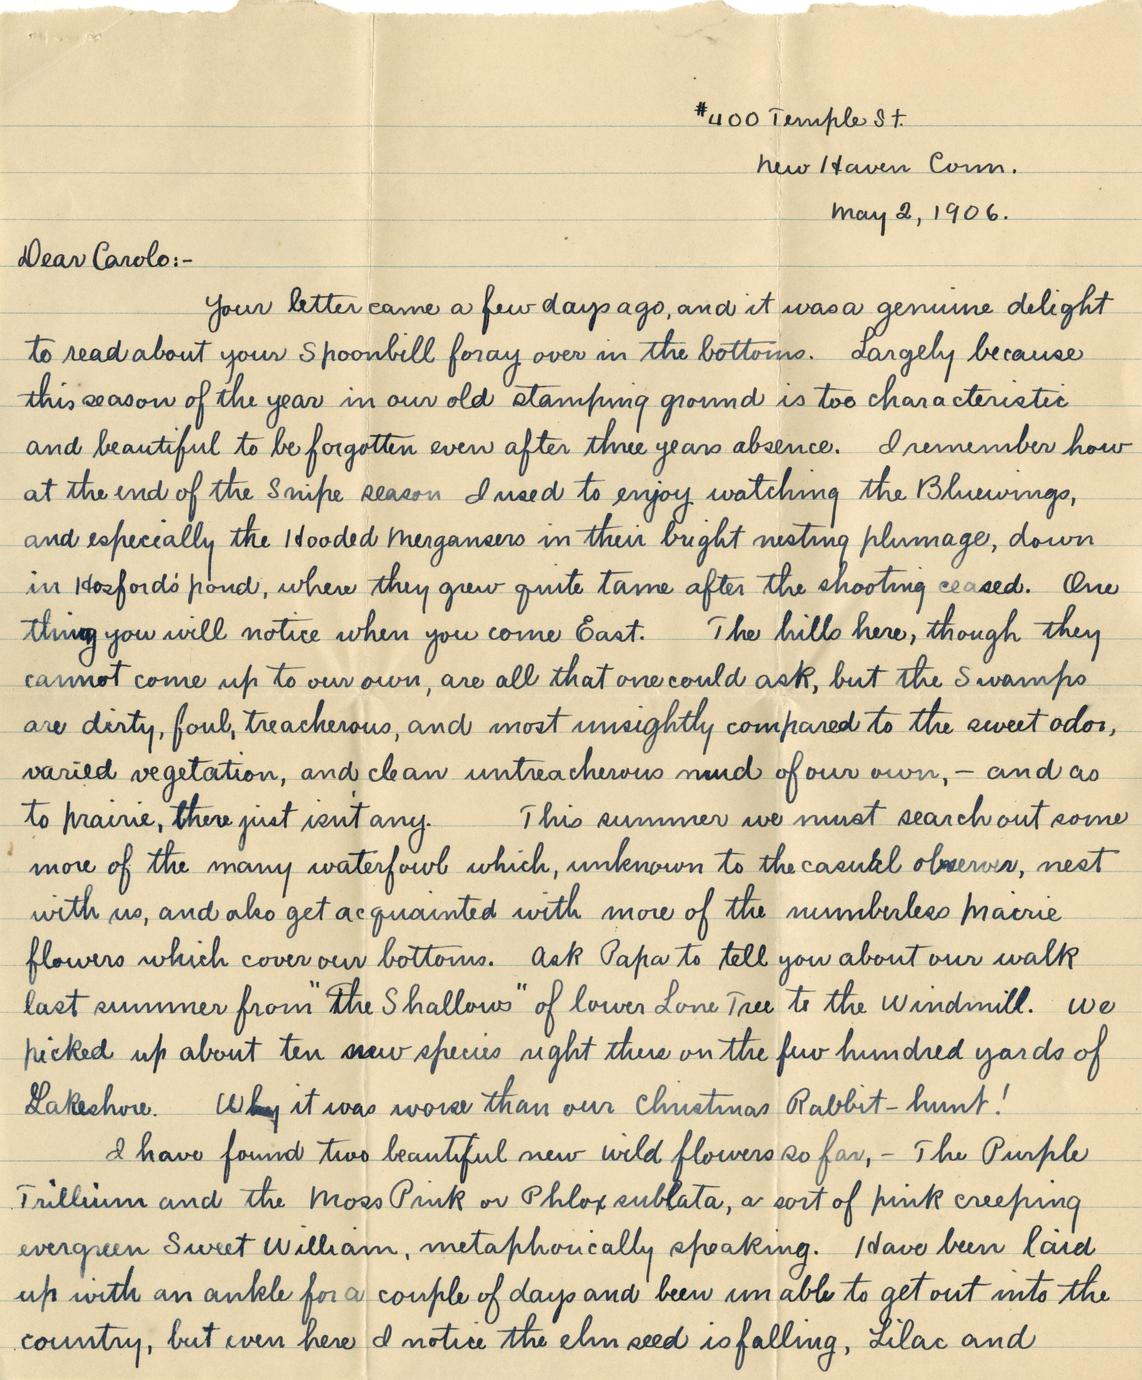 #400 Temple St.
New Haven Conn.
May 2, 1906.
Dear Carolo:-
Your letter came a few days ago, and it was a genuine delight
to read about your Spoonbill foray over in the bottoms. Largely because
this season of the year in our old stamping ground is too characteristic
and beautiful to be forgotten even after three years absence. I remember how
at the end of the Snipe season I used to enjoy watching the Bluewings,
and especially the Hooded Mergansers in their bright nesting plumage, down
in Hosford's pond, where they grew quite tame after the shooting ceased. One
thing you will notice when you come East. The hills here, though they
cannot come up to our own, are all that one could ask, but the Swamps
are dirty, foul, treacherous, and most unsightly compared to the sweet odor,
varied vegetation, and clean untreacherous mud of our own, - and as
to prairie, there just isn't any. This summer we must search out some
more of the many waterfowl which, unknown to the casual observer, nest
with us, and also get acquainted with more of the numberless prairie
flowers which cover our bottoms. Ask Papa to tell you about our walk
last summer from "The Shallows" of lower Lone Tree to the Windmill. We
picked up about ten new species right there on the few hundred yards of
Lakeshore. Why it was worse than our Christmas Rabbit-hunt!
I have found two beautiful new wild flowers so far, - The Purple
Trillium and the Moss Pink or Phlox sublata, a sort of pink creeping
evergreen Sweet William, metaphorically speaking. Have been laid
up with an ankle for a couple of days and been unable to get out into the
country, but even here I notice the elm seed is falling, Lilac and